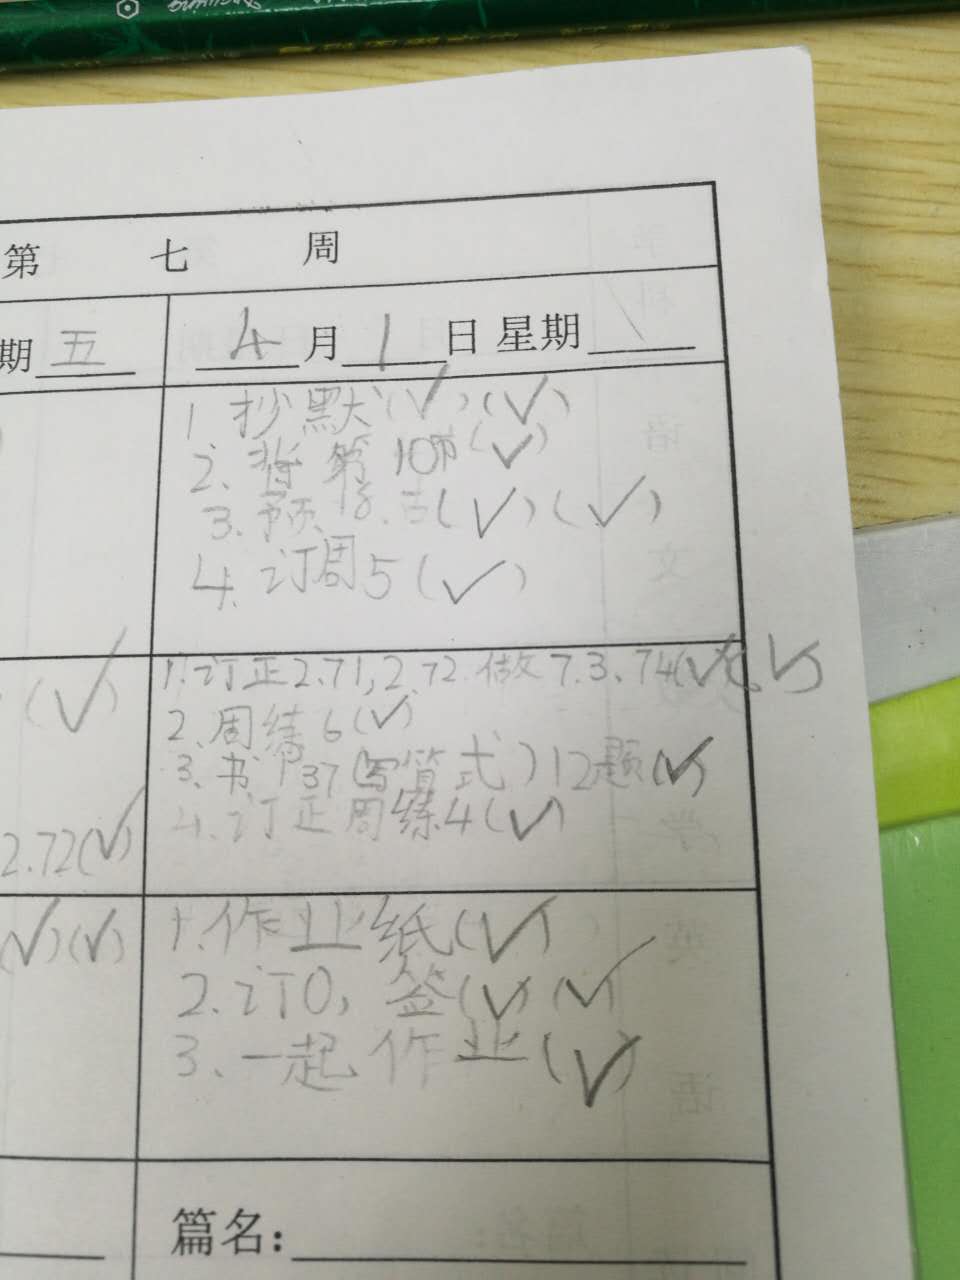 第 七 周
期 五 4 月 1 日 星期 \
1. 抄默(√)(√)
2. 背第10节(√)
3. 预8.吉(√)(√)
4. 订周5(√)
1. 订正2.71,2.72.做7.3、74(√)(√)
(√)
2. 周练6(√)
3. 书P37(写算式)12题(√)
4. 订正周练4(√)
2.72(√)
1. 作业纸(√)
(√)(√)
2. 订0,签(√)(√)
3. 一起作业(√)
篇名: